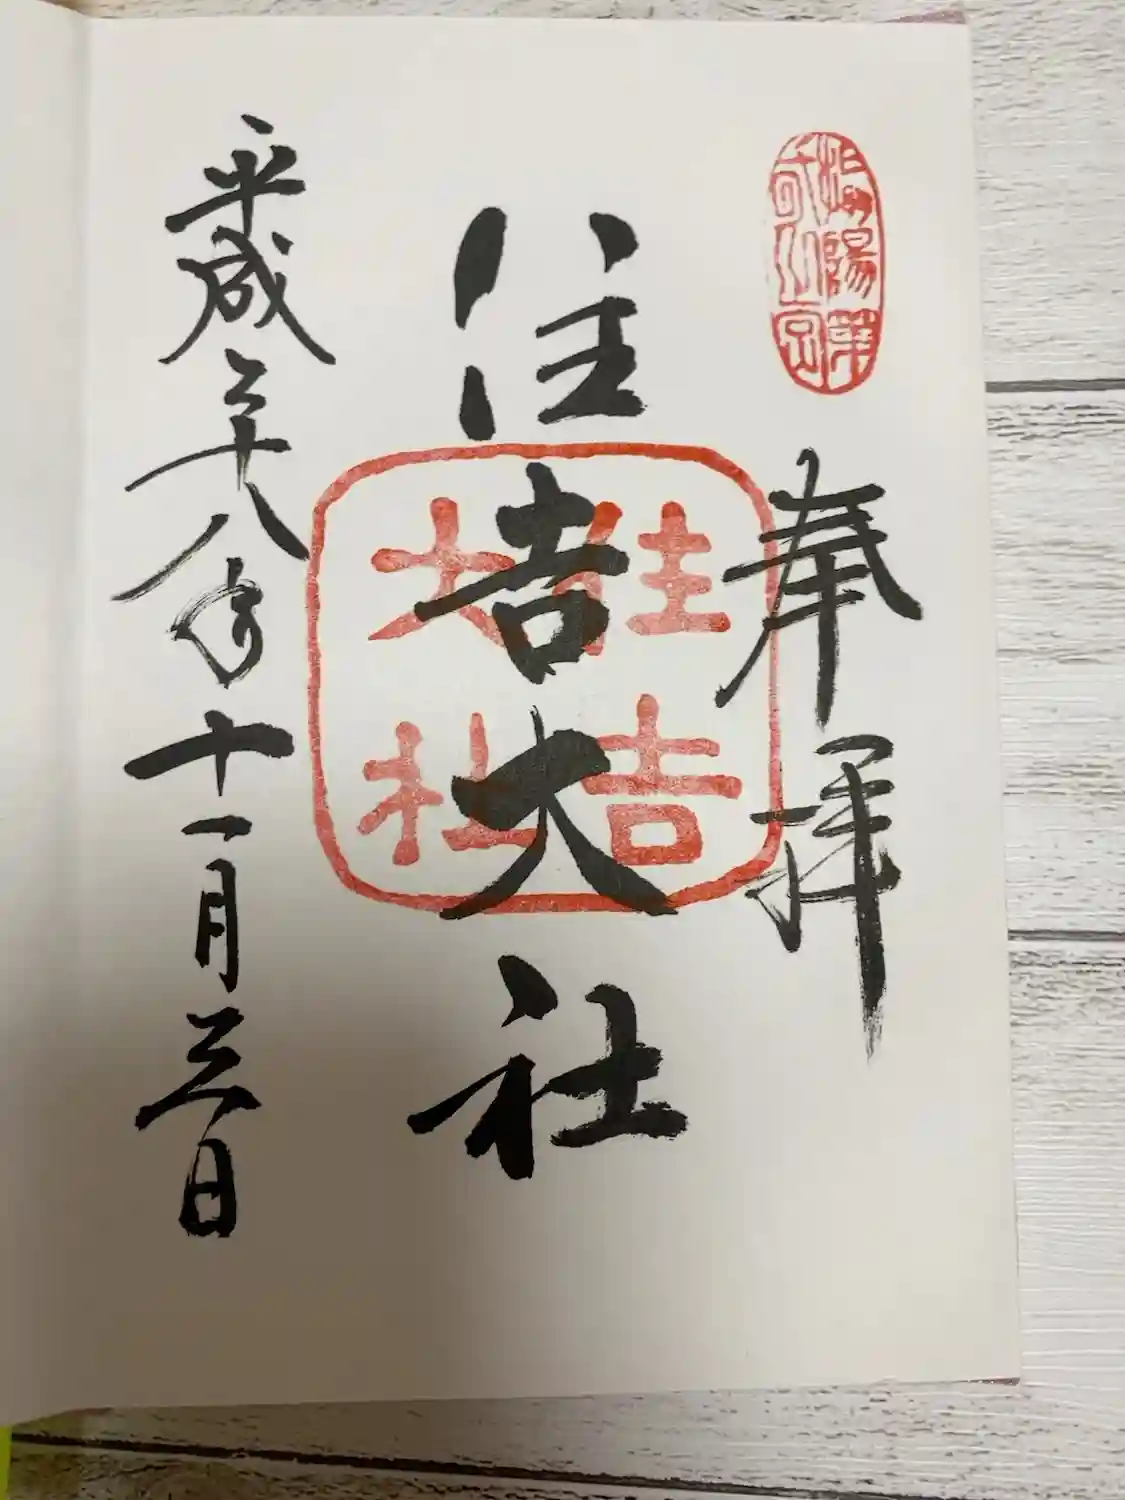 奉拝
住吉大社
住吉
大社
平成二十八年十一月三日